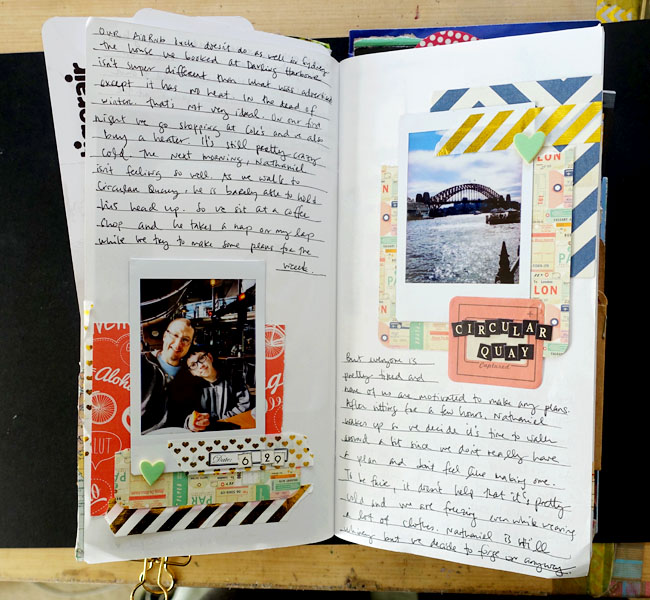 Our AirBnb luck doesn't do as well in Sydney
the house we booked at Darling Harbour
isn't super different than what was advertised
except it has no heat. In the dead of
winter. that's not very ideal. On our first
night we go shopping at Cole's and we also
buy a heater. It's still pretty crazy
cold. The next morning, Nathaniel
isn't feeling so well. As we walk to
Circular Quay, he is barely able to hold
his head up. So we sit at a coffee
shop and he takes a nap on my lap
while we try to make some plans for the
week.
tigerair
Aloha
LUT
Date: 6 29
PAR
LON
LON
CIRCULAR
QUAY
Captured
But everyone is
pretty tired and
none of us are motivated to make any plans.
After sitting for a few hours, Nathaniel
wakes up so we decide it's time to walk
around a bit since we don't really have
a plan and don't feel like making one.
To be fair it doesn't help that it's pretty
cold and we are freezing even while wearing
a lot of clothes. Nathaniel is still
but we decide to forge on anyway.